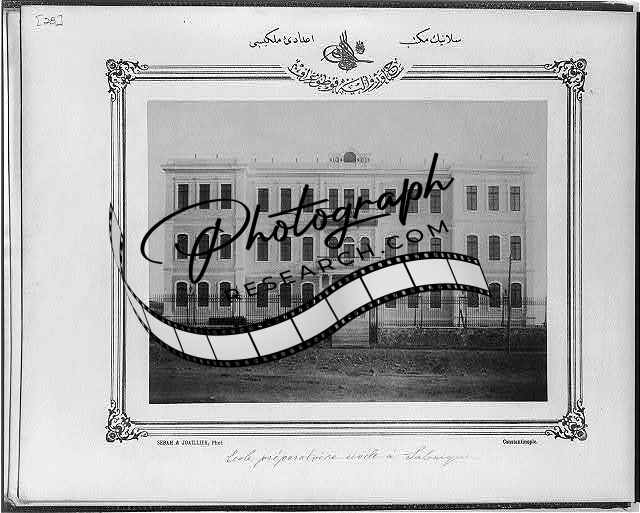 [28]
سلانیك مکتب اعدادئ ملکیسی
Photograph
RESEARCH.COM
SEBAH & JOAILLIER, Phot.
Constantinople.
École préparatoire civile à Salonique